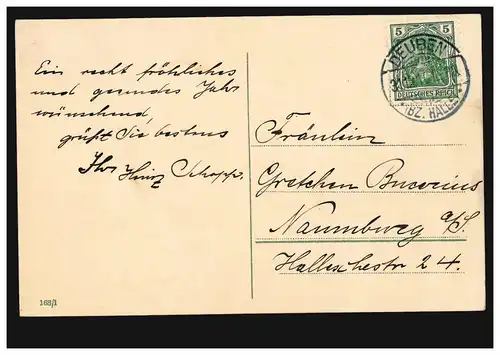 Ein recht fröhliches
und gesundes Jahr
wünschend,
grüßt Sie bestens
Ihr Heinz Schopp.
168/1
5 5
DEUTSCHES REICH
DEUBEN
(BZ. HALLE)
Fräulein
Gretchen Bucerius
Naumburg a/S.
Hallesche str 24.